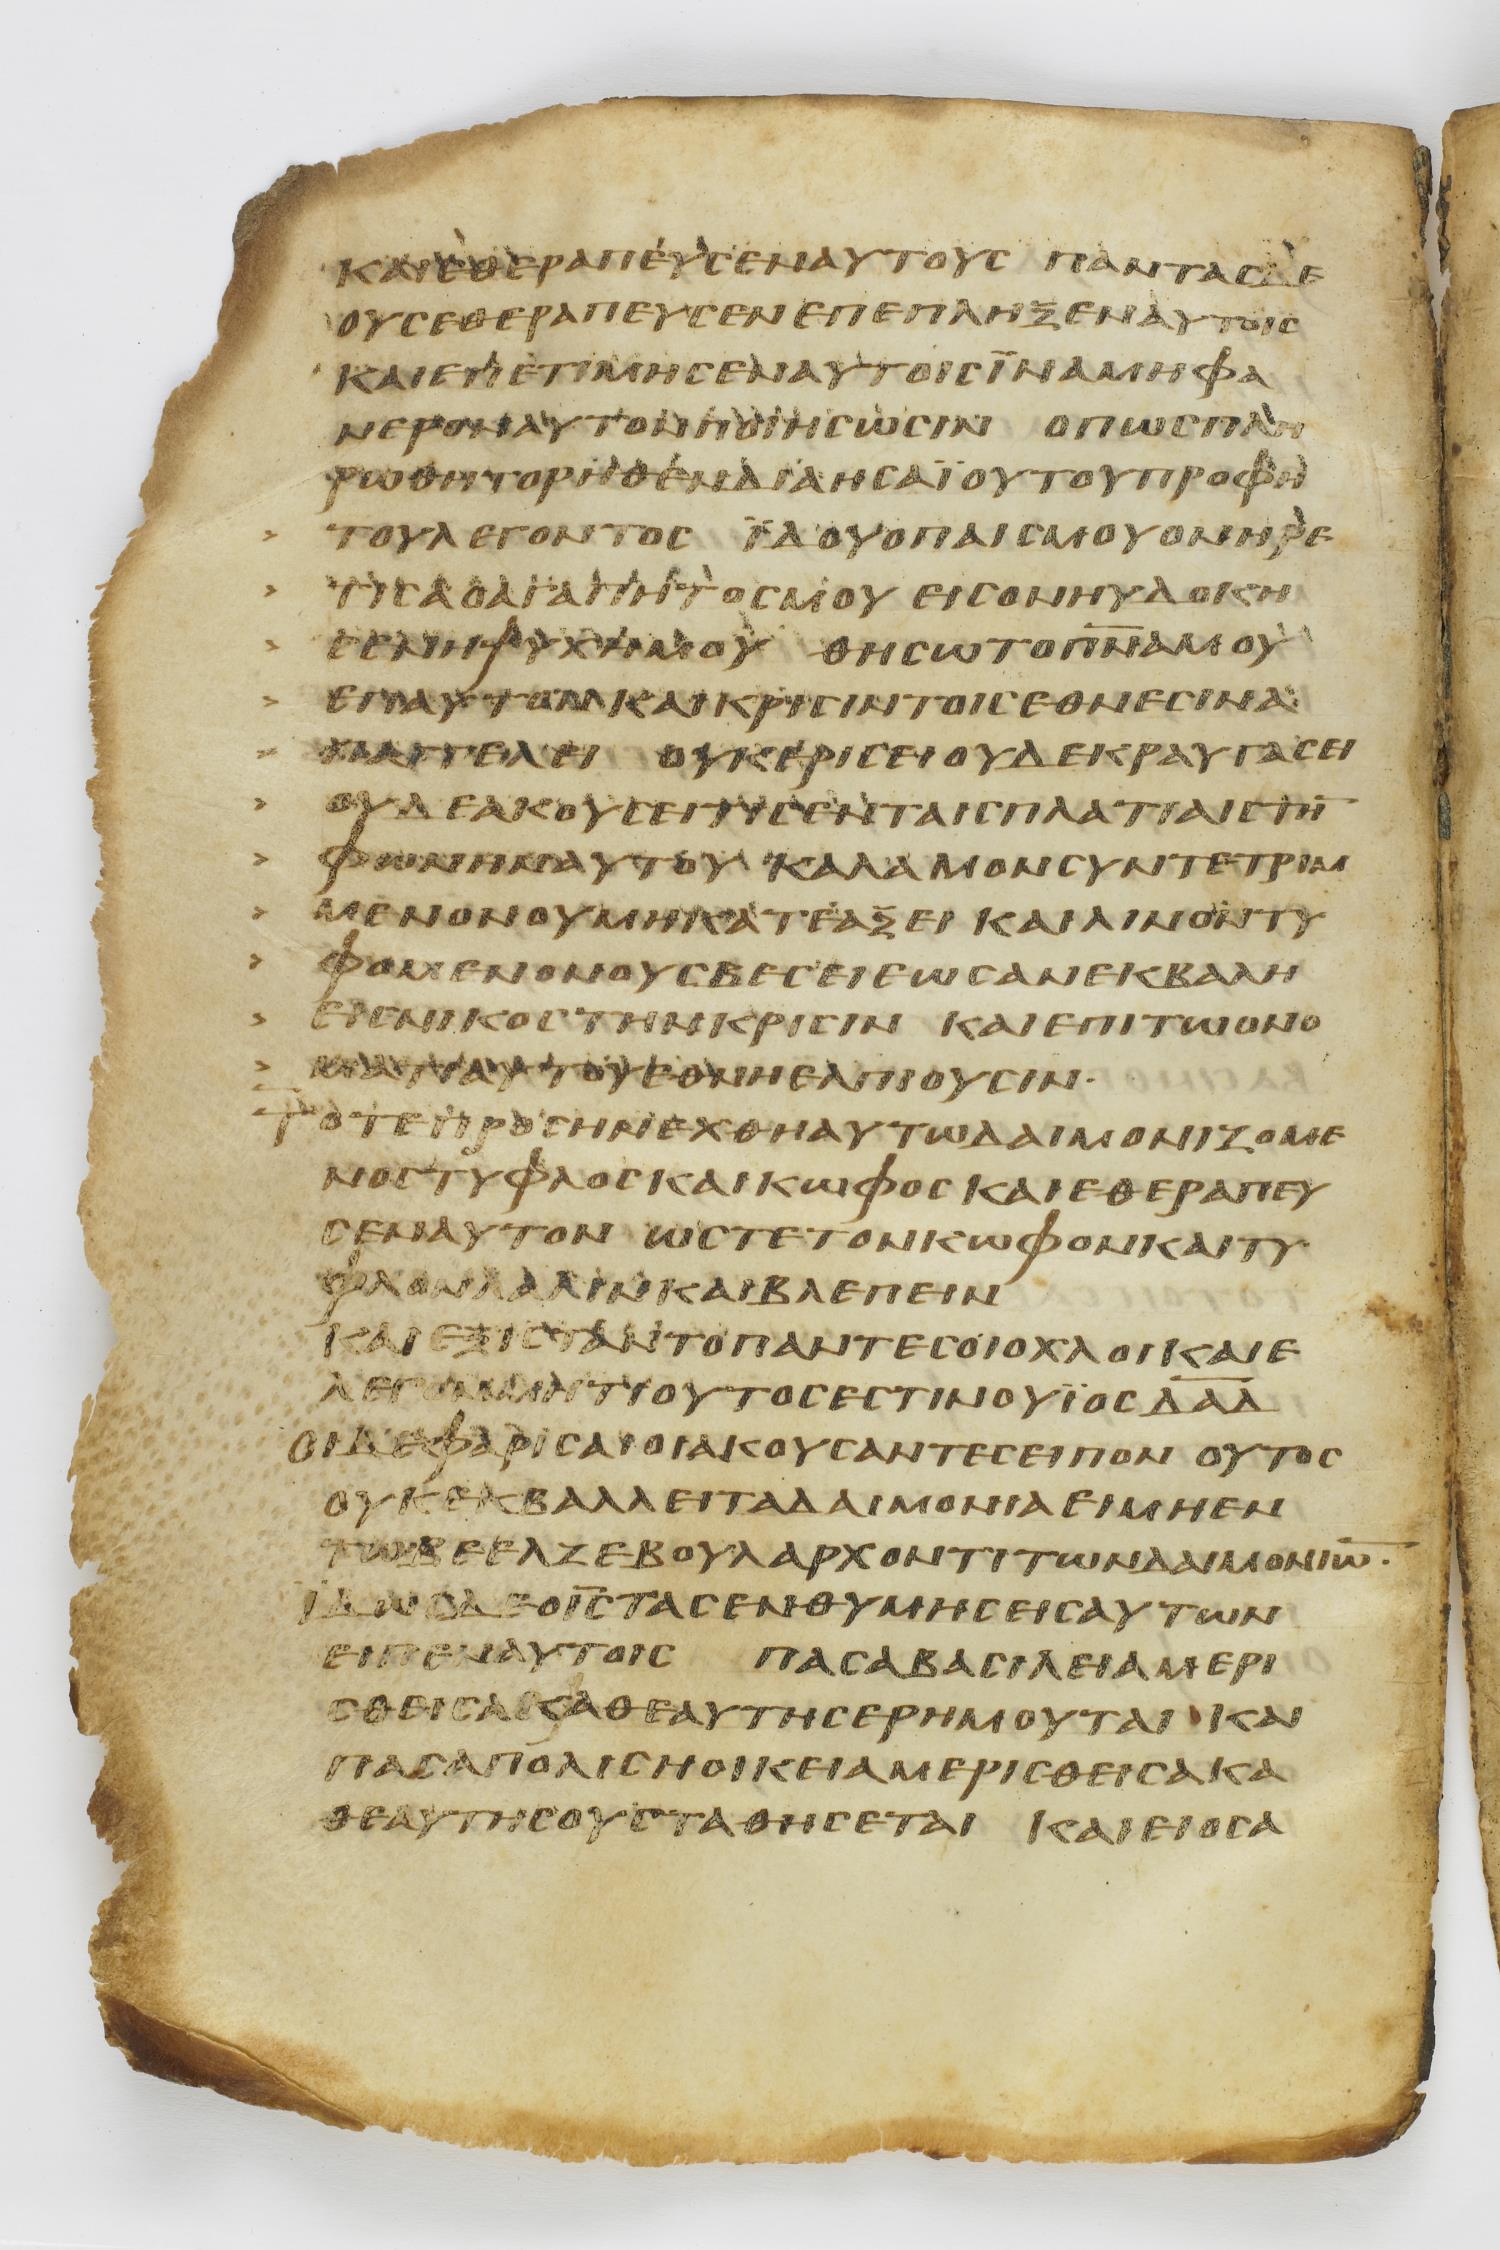 ΚΑΙΕΘΕΡΑΠΕΥΣΕΝΑΥΤΟΥΣ ΠΑΝΤΑΣΔΕ
ΟΥΣΕΘΕΡΑΠΕΥΣΕΝΕΠΕΠΛΗΞΕΝΑΥΤΟΙΣ
ΚΑΙΕΠΕΤΙΜΗΣΕΝΑΥΤΟΙΣΪΝΑΜΗΦΑ
ΝΕΡΟΝΑΥΤΟΝΠΟΙΗΣΩΣΙΝ ΟΠΩΣΠΛΗ
ΡΩΘΗΤΟΡΗΘΕΝΔΙΑΗΣΑΪΟΥΤΟΥΠΡΟΦΗ
> ΤΟΥΛΕΓΟΝΤΟΣ ΪΔΟΥΟΠΑΙΣΜΟΥΟΝΗΡΕ
> ΤΙΣΑΟΑΓΑΠΗΤΟΣΜΟΥ ΕΙΣΟΝΗΥΔΟΚΗ
> ΣΕΝΗΨΥΧΗΜΟΥ ΘΗΣΩΤΟΠ̅Ν̅Α̅ΜΟΥ
> ΕΠΑΥΤΟΝΚΑΙΚΡΙΣΙΝΤΟΙΣΕΘΝΕΣΙΝΑ
> ΠΑΓΓΕΛΕΙ ΟΥΚΕΡΙΣΕΙΟΥΔΕΚΡΑΥΓΑΣΕΙ
> ΟΥΔΕΑΚΟΥΣΕΙΤΙΣΕΝΤΑΙΣΠΛΑΤΙΑΙΣΤΗ̅
> ΦΩΝΗΝΑΥΤΟΥ ΚΑΛΑΜΟΝΣΥΝΤΕΤΡΙΜ
> ΜΕΝΟΝΟΥΜΗΚΑΤΕΑΞΕΙ ΚΑΙΛΙΝΟΝΤΥ
> ΦΟΜΕΝΟΝΟΥΣΒΕΣΕΙΕΩΣΑΝΕΚΒΑΛΗ
> ΕΙΣΝΙΚΟΣΤΗΝΚΡΙΣΙΝ ΚΑΙΕΠΙΤΩΟΝΟ
> ΜΑΤΙΑΥΤΟΥΕΘΝΗΕΛΠΙΟΥΣΙΝ·
ΤΟΤΕΠΡΟΣΗΝΕΧΘΗΑΥΤΩΔΑΙΜΟΝΙΖΟΜΕ
ΝΟΣΤΥΦΛΟΣΚΑΙΚΩΦΟΣΚΑΙΕΘΕΡΑΠΕΥ
ΣΕΝΑΥΤΟΝ ΩΣΤΕΤΟΝΚΩΦΟΝΚΑΙΤΥ
ΦΛΟΝΛΑΛΙΝΚΑΙΒΛΕΠΕΙΝ
ΚΑΙΕΞΙΣΤΑΝΤΟΠΑΝΤΕΣΟΙΟΧΛΟΙΚΑΙΕ
ΛΕΓΟΝΜΗΤΙΟΥΤΟΣΕΣΤΙΝΟΥΪΟΣΔ̅Α̅Δ̅
ΟΙΔΕΦΑΡΙΣΑΙΟΙΑΚΟΥΣΑΝΤΕΣΕΙΠΟΝ ΟΥΤΟΣ
ΟΥΚΕΚΒΑΛΛΕΙΤΑΔΑΙΜΟΝΙΑΕΙΜΗΕΝ
ΤΩΒΕΕΛΖΕΒΟΥΛΑΡΧΟΝΤΙΤΩΝΔΑΙΜΟΝΙΩ̅·
ΪΔΩΣΔΕΟΙ̅Σ̅ΤΑΣΕΝΘΥΜΗΣΕΙΣΑΥΤΩΝ
ΕΙΠΕΝΑΥΤΟΙΣ ΠΑΣΑΒΑΣΙΛΕΙΑΜΕΡΙ
ΣΘΕΙΣΑΚΑΘΕΑΥΤΗΣΕΡΗΜΟΥΤΑΙ ΚΑΙ
ΠΑΣΑΠΟΛΙΣΗΟΙΚΕΙΑΜΕΡΙΣΘΕΙΣΑΚΑ
ΘΕΑΥΤΗΣΟΥΣΤΑΘΗΣΕΤΑΙ ΚΑΙΕΙΟΣΑ